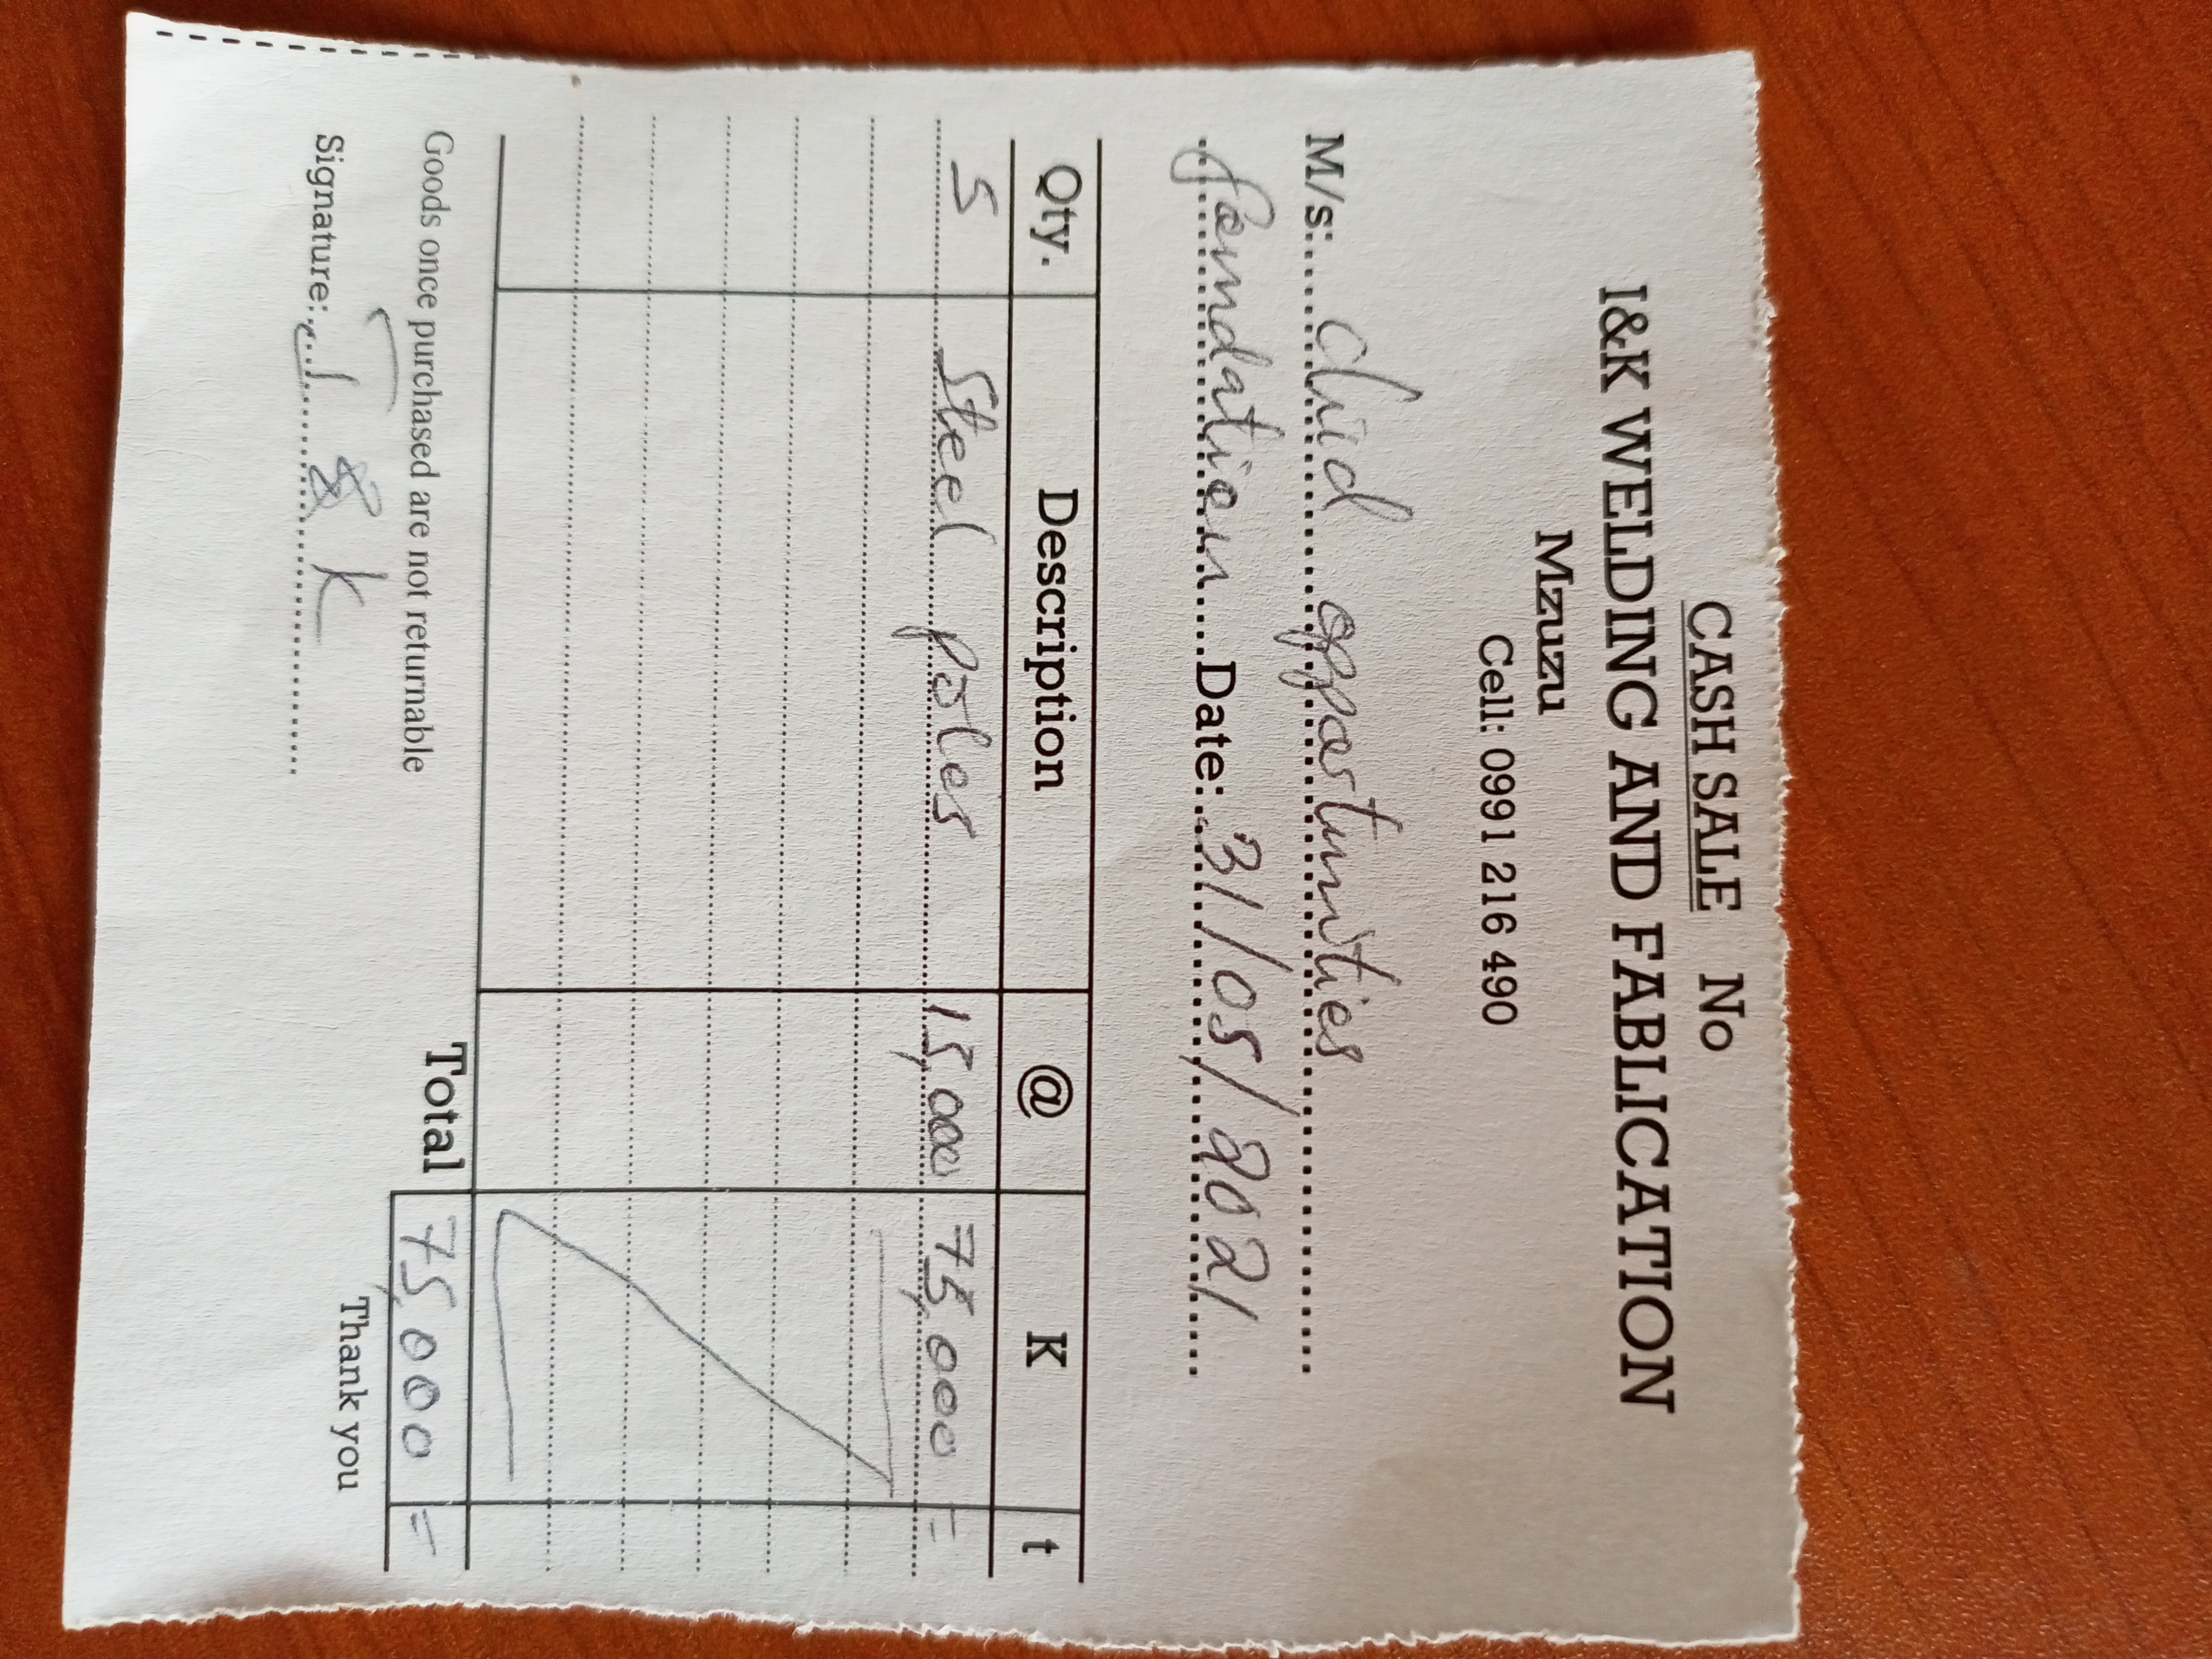 CASH SALE No
I&K WELDING AND FABLICATION
Mzuzu
Cell: 0991 216 490
M/s: Chid opportunities
foundation Date: 31/05/2021
Qty. Description @ K t
5 Steel poles 15,000 75,000 =
Total 75,000 =
Goods once purchased are not returnable
Signature: I & K
Thank you